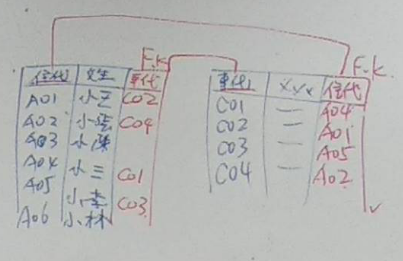 F.K
F.K.
住代 姓 車代
車代 XXX 住代
A01 小王 C02
A02 小 C04
A03 小陳
A04 小三 C01
A05 小李 C03
A06 小林
C01 — A04
C02 — A01
C03 — A05
C04 — A02